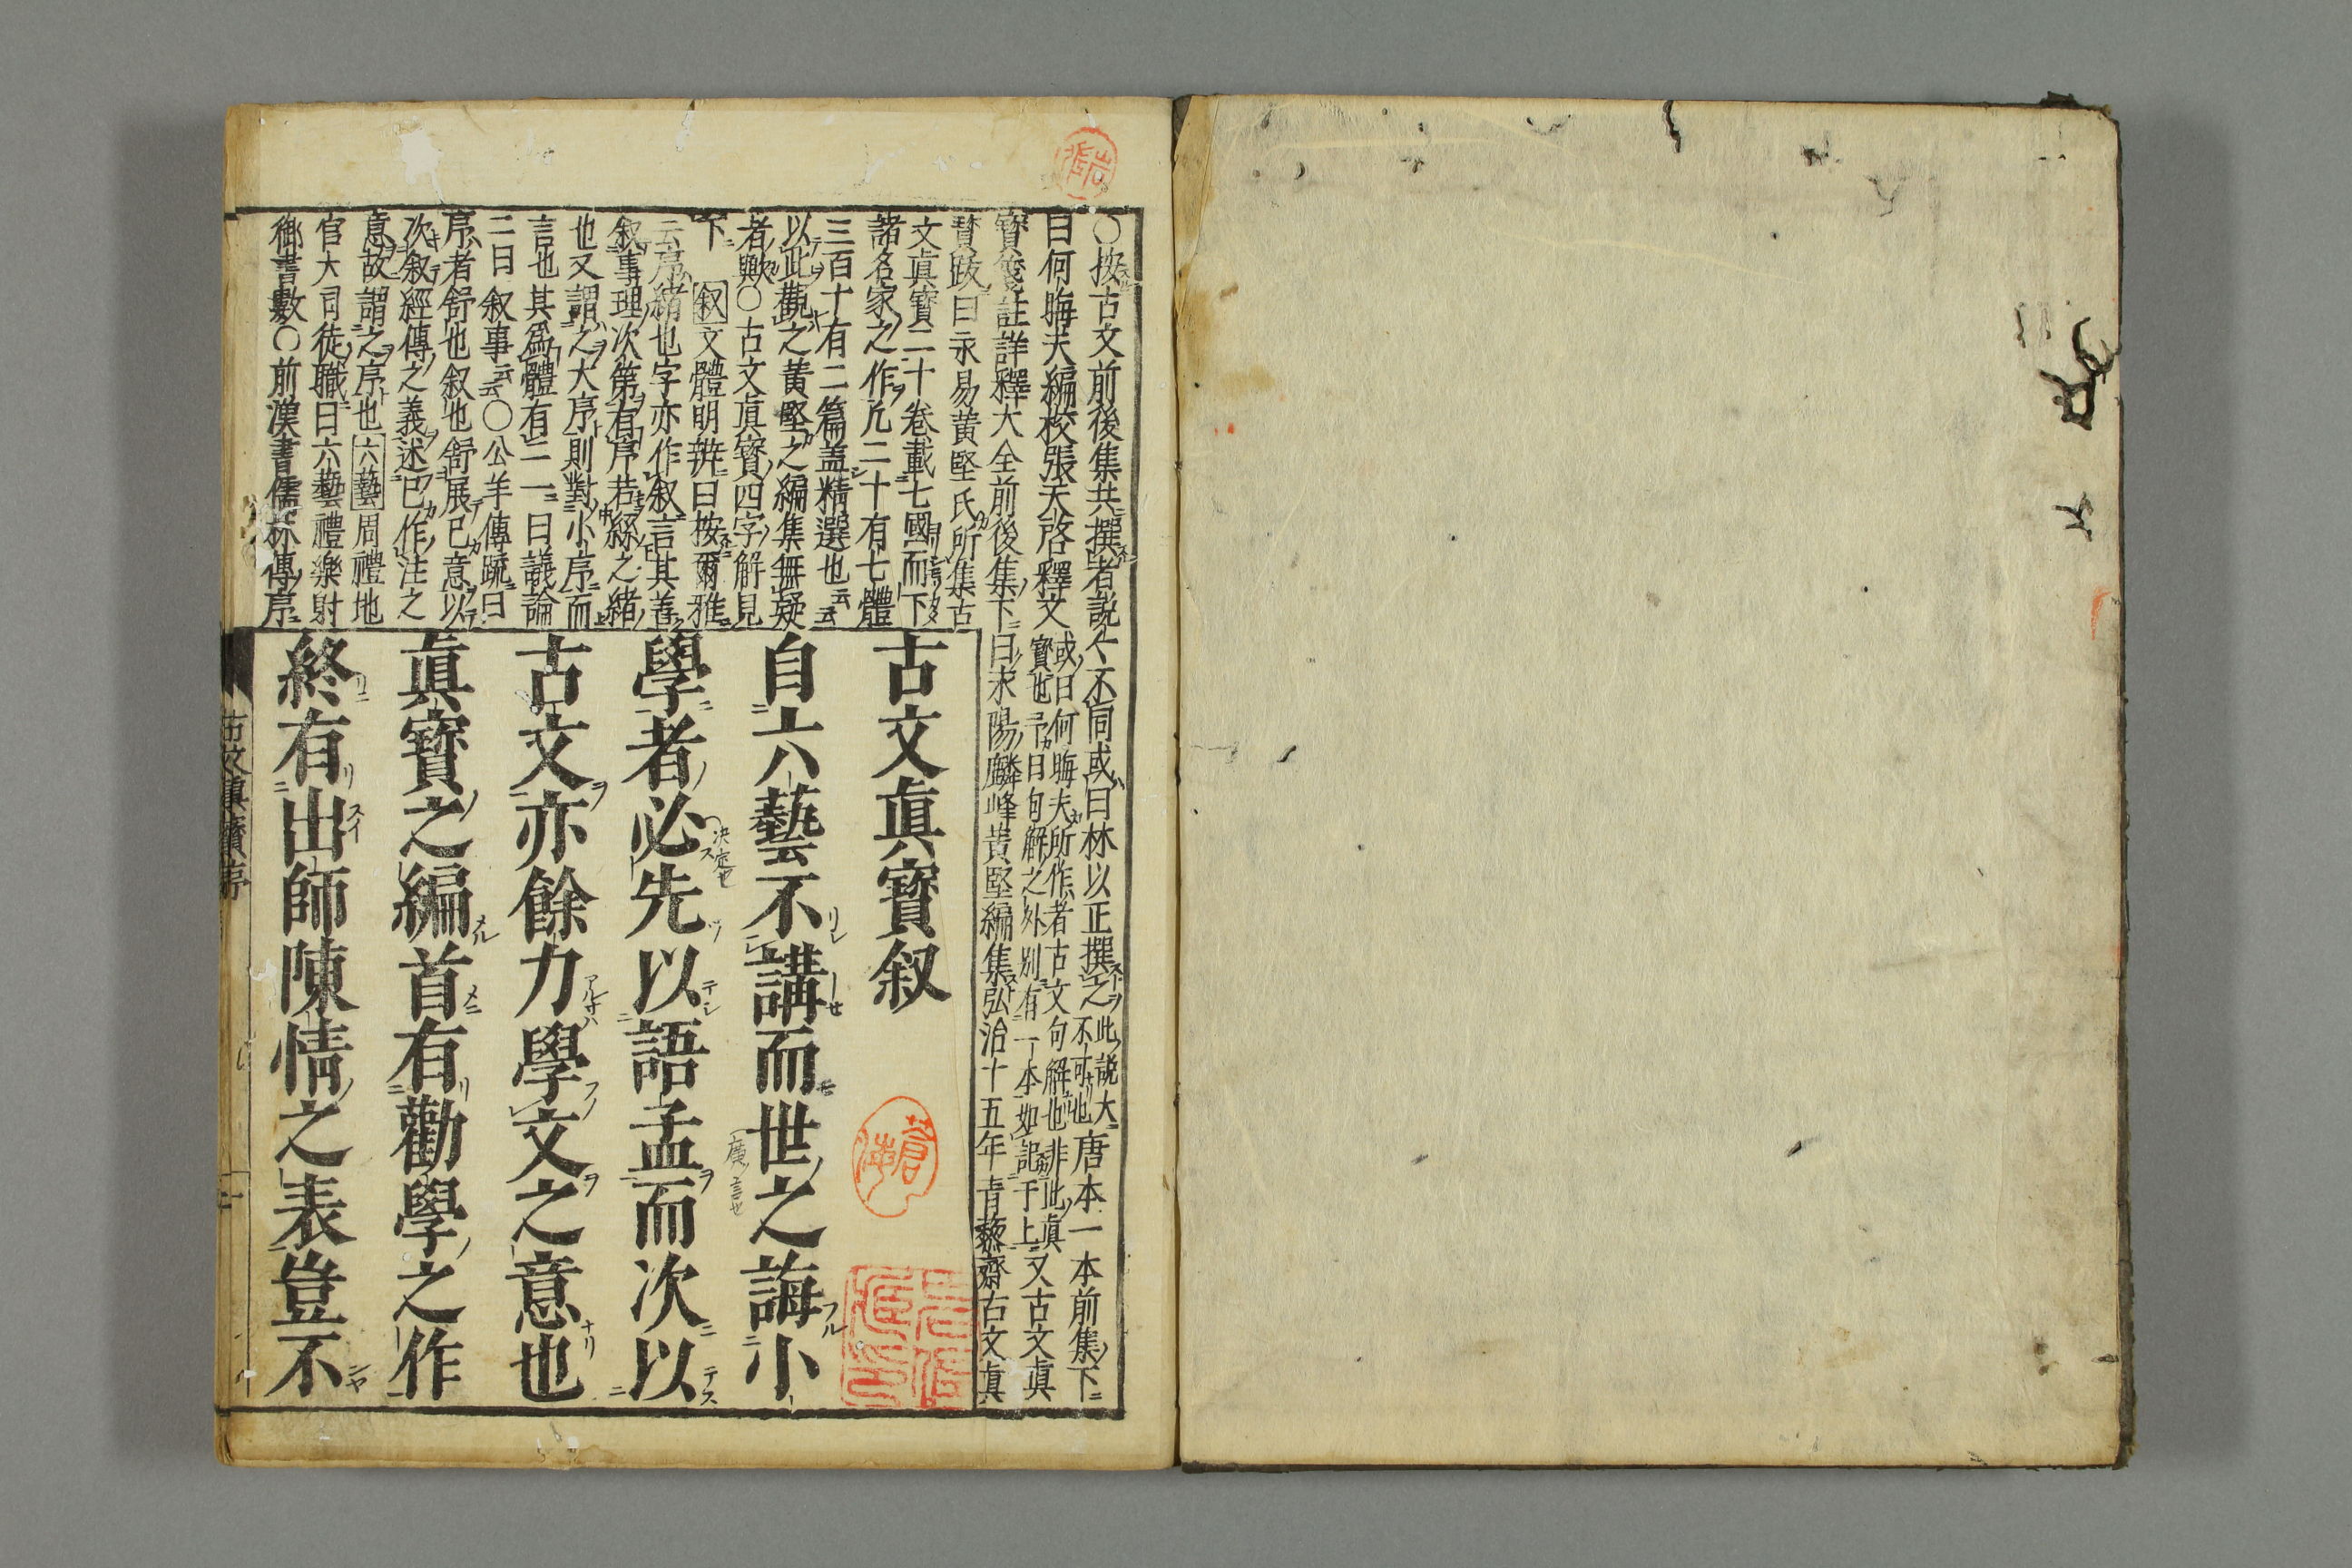 ○按古文前後集共撰者説々不同或曰林以正撰之此説大不可也唐本一本前集下
曰何晦夫編校張天啓釋文或曰何晦夫所作者古文句解也非此眞寶也予曰句解之外別有一本如記于上又古文眞
寳箋註詳釋大全前後集下曰永陽麟峰黄堅編集弘治十五年青藜齋古文眞
寳跋曰永易黄堅氏所集古
文眞寳二十卷載七國而下
諸名家之作凡二十有七體
三百十有二篇盖精選也云云
以此觀之黄堅之編集無疑
者歟○古文眞寳四字解見
下 叙文體明辨曰按爾雅
云序緒也字亦作叙言其善
叙事理次第有序若絲之緒
也又謂之大序則對小序而
言也其爲體有二一曰議論
二曰叙事云云○公羊傳疏曰
序者舒也叙也舒展已意以
次叙經傳之義述已作注之
意故謂之序也六藝周禮地
官大司徒職曰六藝禮樂射
御書數○前漢書儒林傳序
古文眞寳叙
自六藝不講而世之誨小
學者必先以語孟而次以
古文亦餘力學文之意也
眞寳之編首有勸學之作
終有出師陳情之表豈不
古文眞寳序